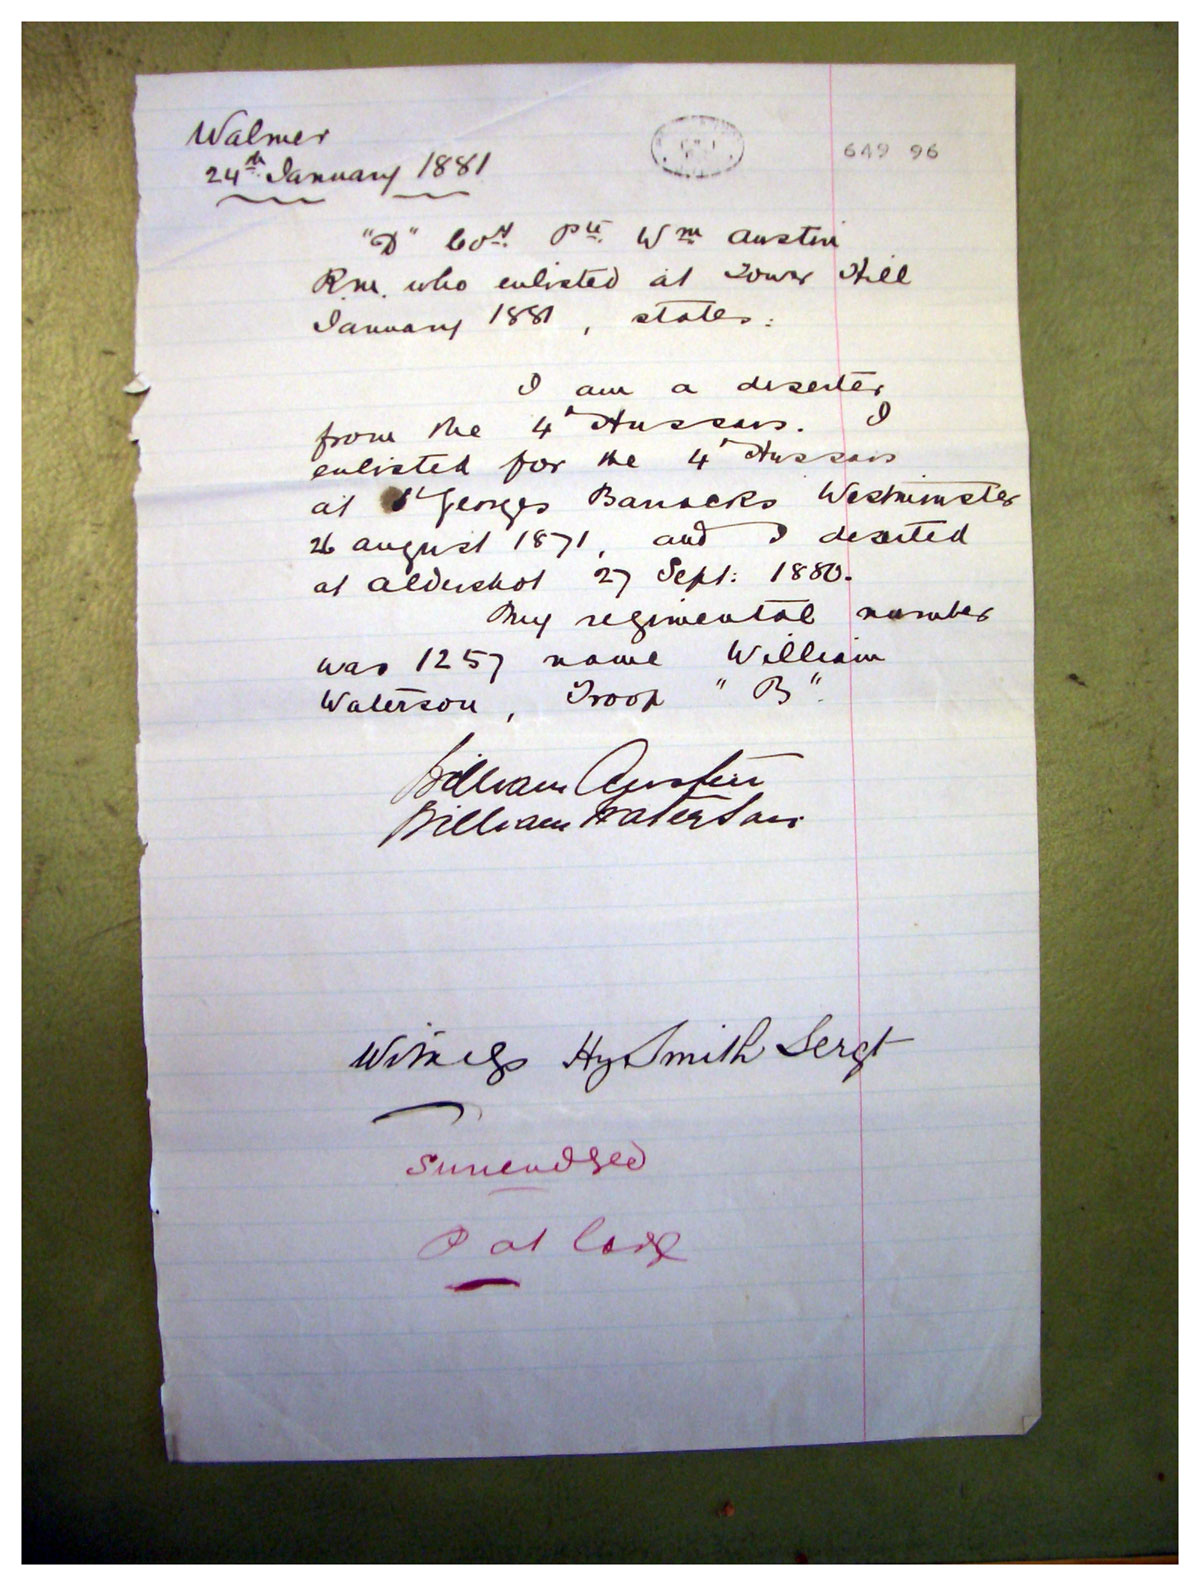 Walmer
649 96
24th January 1881
"D" Coy. Pte. Wm Austin
R.M. who enlisted at Tower Hill
January 1881, states:
I am a deserter
from the 4 Hussars. I
enlisted for the 4 Hussars
at St Georges Barracks Westminster
26 August 1871, and I deserted
at Aldershot 27 Sept: 1880.
My regimental number
was 1257 name William
Waterson, Troop "B".
William Austin
William Waterson
Witness Hy Smith Sergt
Surrendered
P at Large